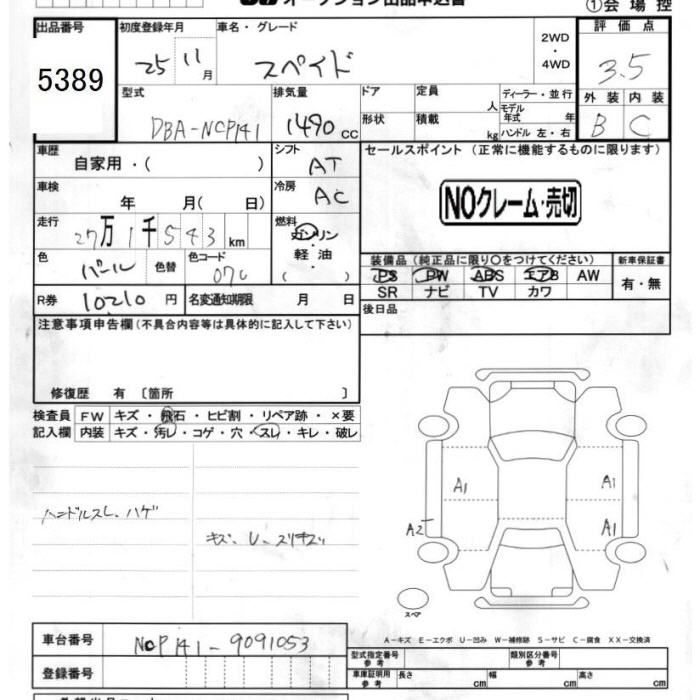 オークション出品申込書
①会場控
出品番号 初度登録年月 車名・グレード 2WD・4WD 評価点
5389 25 11月 スペイド 3.5
型式 排気量 ドア 定員 人 ディーラー・並行 外装 内装
DBA-NCP141 1490 cc 形状 積載 kg モデル年式 年 B C
ハンドル 左・右
車歴 自家用・( ) シフト AT セールスポイント (正常に機能するものに限ります)
車検 年 月( 日) 冷房 AC NOクレーム・売切
走行 27万1千543 km 燃料 ガソリン・軽油・( )
装備品 (純正品に限り〇をつけてください) 新車保証書
色 パール 色替 色コード 070 PS PW ABS エアB AW 有・無
SR ナビ TV カワ
R券 10210 円 名変通知期限 月 日 後日品
注意事項申告欄 (不具合内容等は具体的に記入して下さい)
修復歴 有 〔箇所 〕
検査員 FW キズ・飛石・ヒビ割・リペア跡・×要
記入欄 内装 キズ・汚レ・コゲ・穴・スレ・キレ・破レ
ハンドルスレ、ハゲ
キズ、U、スリキズ
A1
A1
A2
A1
スペア
A-キズ E-エクボ U-凹み W-補修跡 S-サビ C-腐食 XX-交換済
車台番号 NCP141-9091053
型式指定番号 参考 類別区分番号 参考
登録番号 車庫証明用 参考 長さ cm 幅 cm 高さ cm